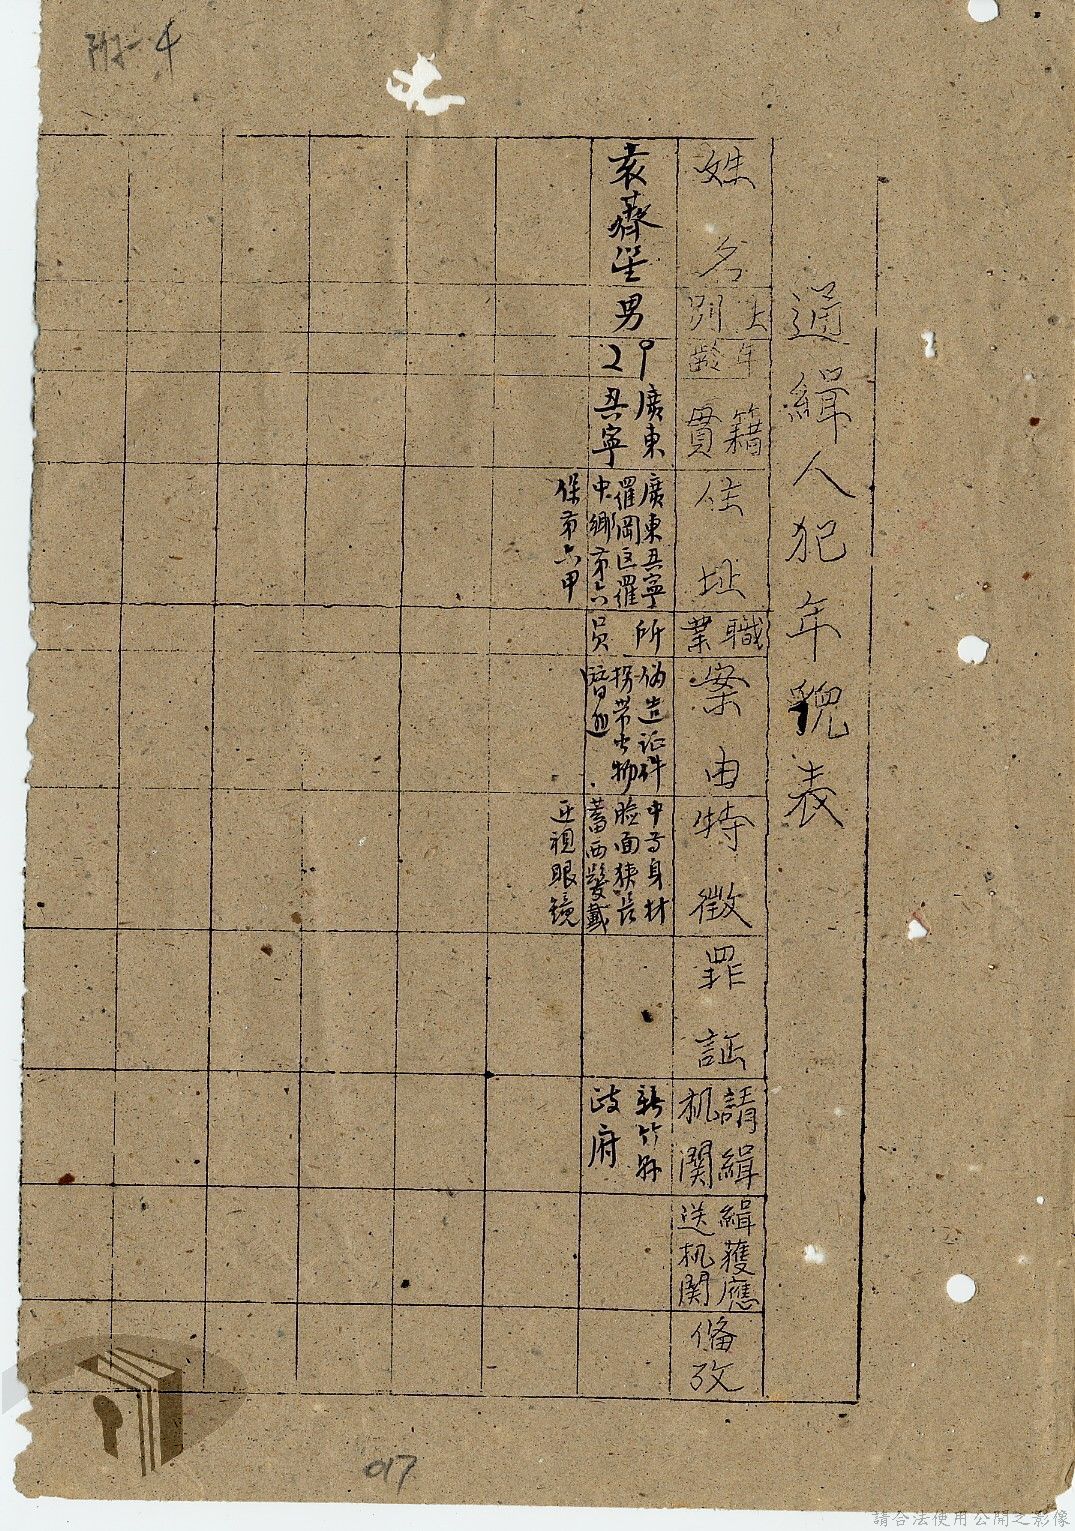 附-4
通緝人犯年貌表
姓名
性別
年齡
籍貫
住址
職業
案由
特徵
罪証
請緝机関
緝獲應送机関
俻攷
男
29
廣東
興寧
廣東興寧
羅岡区羅
中鄉第六
保第六甲
所
員
偽造証件
拐帶出物
中等身材
臉面狹長
蓄西髮戴
近視眼鏡
新竹縣
政府
017
請合法使用公開之影像